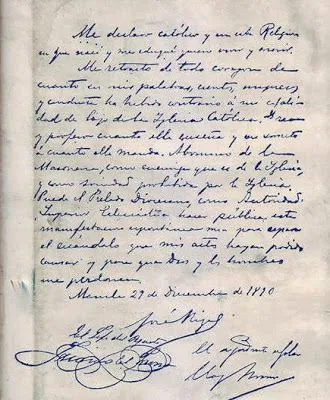 Me declaro católico y en esta Religion
en que nací y me eduqué quiero vivir y morir.
Me retracto de todo corazon de
cuanto en mis palabras, escritos, impresos
y conducta ha habido contrario á mi calidad
dad de hijo de la Iglesia Católica. Creo
y profeso cuanto ella enseña y me someto
á cuanto ella manda. Abomino de la
Masonería, como enemiga que es de la Iglesia,
y como sociedad prohibida por la Iglesia.
Puede el Prelado Diocesano, como Autoridad
Superior Eclesiástica hacer pública esta
manifestacion espontánea mia para reparar
el escándalo que mis actos hayan podido
causar y para que Dios y los hombres
me perdonen.
Manila 29 de Diciembre de 1890
José Rizal
El Jefe del Piquete
El Ayudante de Plaza
Eloy Moure